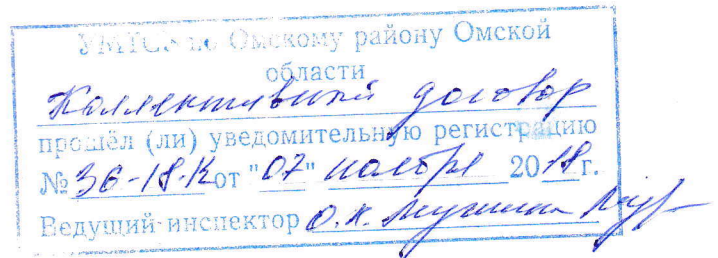 УМТСР по Омскому району Омской
области
Коллективный договор
прошёл (ли) уведомительную регистрацию
№ 36-18-К от "07" ноября 2018 г.
Ведущий инспектор О.К.